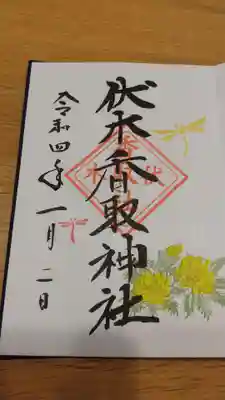 伏木香取神社
令和四年一月二日